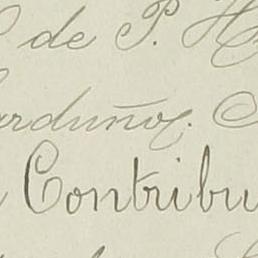 de P. H
arduñoz.
Contribu